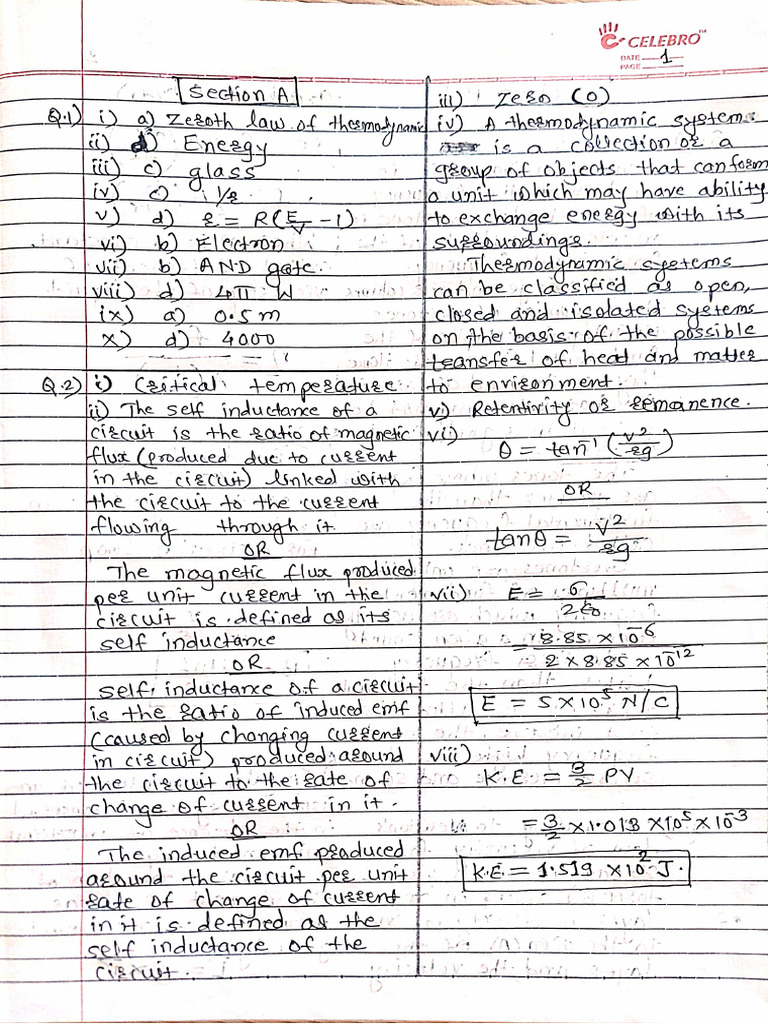 CELEBRO
DATE 1
PAGE
Section A
Q.1) i) a) Zeroth law of thermodynamic
ii) d) Energy
iii) c) glass
iv) c) 1/r
v) d) r = R(E/V - 1)
vi) b) Electron
vii) b) AND gate.
viii) d) 4π W
ix) a) 0.5 m
x) d) 4000
Q.2) i) Critical temperature
ii) The self inductance of a
circuit is the ratio of magnetic
flux (produced due to current
in the circuit) linked with
the circuit to the current
flowing through it
OR
The magnetic flux produced
per unit current in the
circuit is defined as its
self inductance
OR
self inductance of a circuit
is the ratio of induced emf
(caused by changing current
in circuit) produced around
the circuit to the rate of
change of current in it.
OR
The induced emf produced
around the circuit per unit
rate of change of current
in it is defined as the
self inductance of the
circuit.
iii) Zero (0)
iv) A thermodynamic system
is a collection or a
group of objects that can form
a unit which may have ability
to exchange energy with its
surroundings.
Thermodynamic systems
can be classified as open,
closed and isolated systems
on the basis of the possible
transfer of heat and matter
to environment.
v) Retentivity or remanence.
vi) θ = tan⁻¹ (v²/rg)
OR
tanθ = v²/rg
vii) E = σ/2ε₀
= 8.85 × 10⁻⁶ / 2 × 8.85 × 10⁻¹²
E = 5 × 10⁵ N/C
viii) K.E = 3/2 PV
= 3/2 × 1.013 × 10⁵ × 10⁻³
K.E = 1.519 × 10² J.